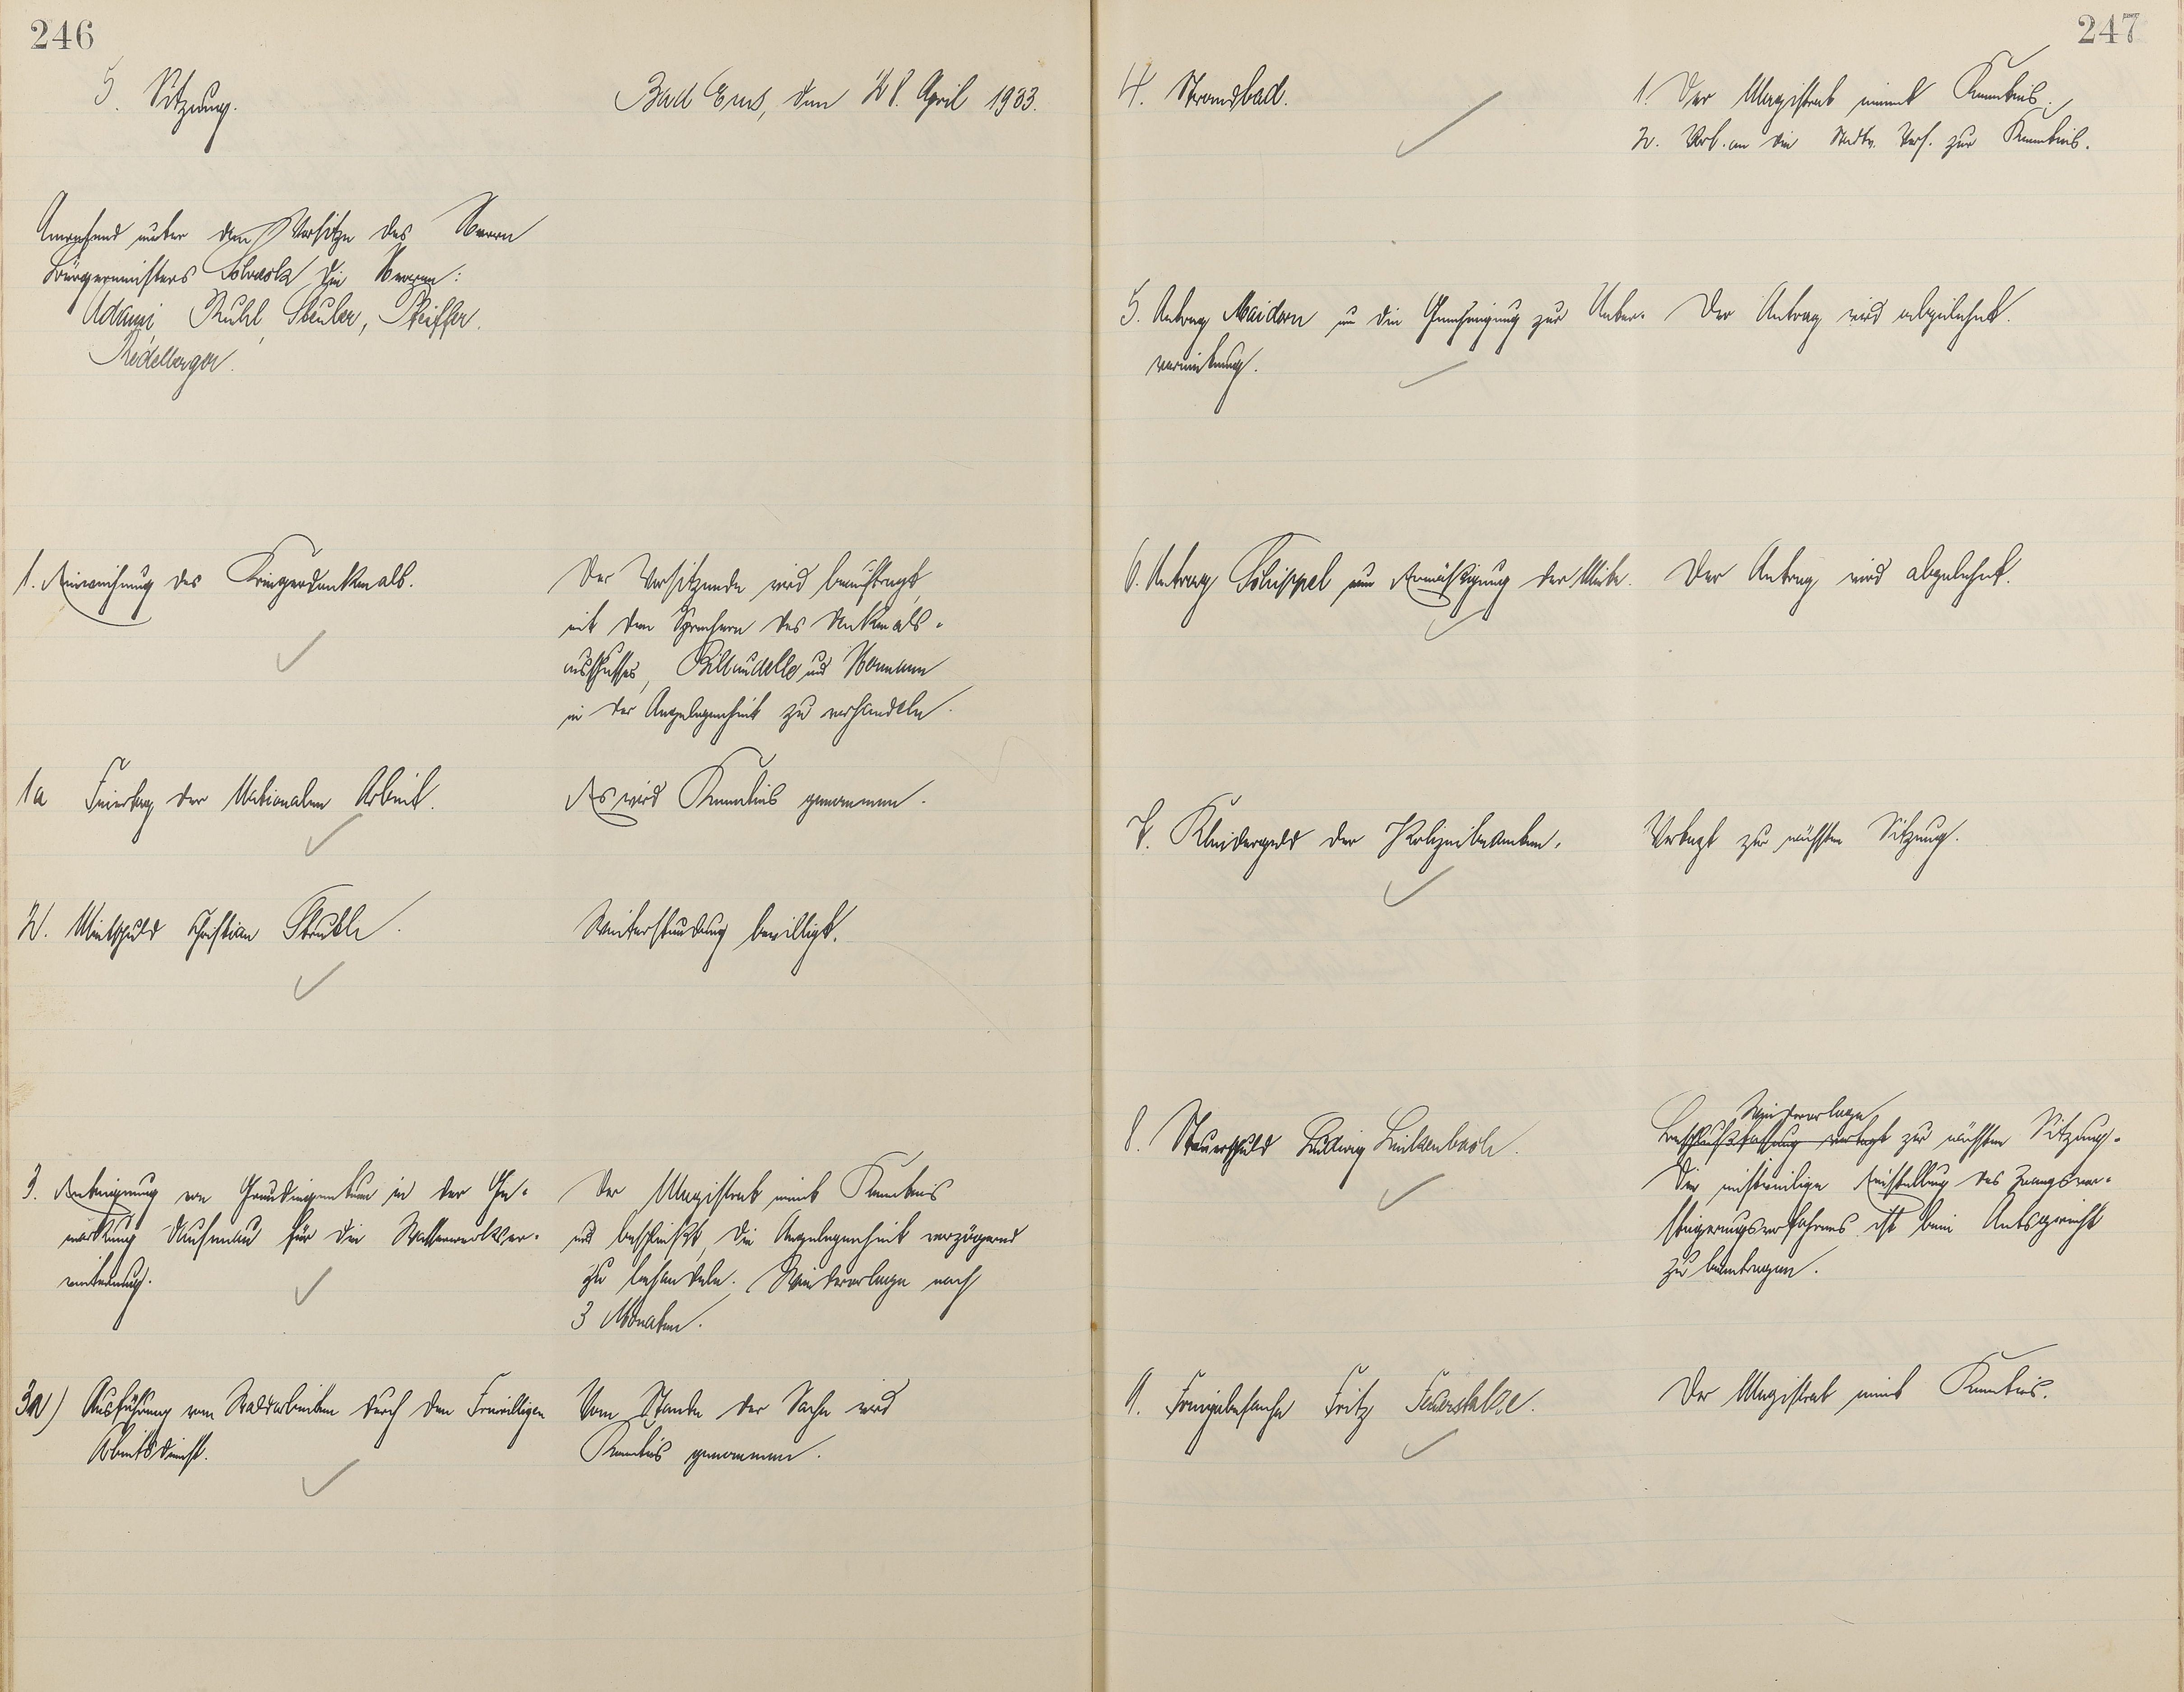 246
5. Sitzung.
Bad Ems, den 28. April 1933.
Anwesend unter dem Vorsitze des Herrn
Bürgermeisters die Herren:
Adami, Ruhl, Steuler, Pfeiffer,
Redelberger.
1. Einweihung des Kriegerdenkmals.
Der Vorsitzende wird beauftragt,
mit den Sprechern des Denkmals-
ausschusses, Billaudelle und Hermann
in der Angelegenheit zu verhandeln.
1a Feiertag der Nationalen Arbeit.
Es wird Kenntnis genommen.
2. Mietschuld Christian
Weiterstundung bewilligt.
3. Enteignung von Grundeigentum in der Ge-
markung Dausenau für die Wasserwerkser-
weiterung.
Der Magistrat nimmt Kenntnis
und beschließt, die Angelegenheit verzögernd
zu behandeln. Wiedervorlage nach
3 Monaten.
3a) Ausführung von Waldarbeiten durch den Freiwilligen
Arbeitsdienst.
Vom Stande der Sache wird
Kenntnis genommen.
247
4. Strandbad.
1. Der Magistrat nimmt Kenntnis.
2. Vorl. an die Stadtv. Vers. zur Kenntnis.
5. Antrag Maidorn um die Genehmigung zur Unter-
vermietung.
Der Antrag wird abgelehnt.
6. Antrag Schüppel um Ermäßigung der Miete.
Der Antrag wird abgelehnt.
7. Kleidergeld der Polizeibeamten.
Vertagt zur nächsten Sitzung.
8. Steuerschuld Ludwig Linkenbach.
Wiedervorlage
Beschlußfassung vertagt zur nächsten Sitzung.
Die einstweilige Einstellung des Zwangsver-
steigerungsverfahrens ist beim Amtsgericht
zu beantragen.
9. Freigabesache Fritz
Der Magistrat nimmt Kenntnis.